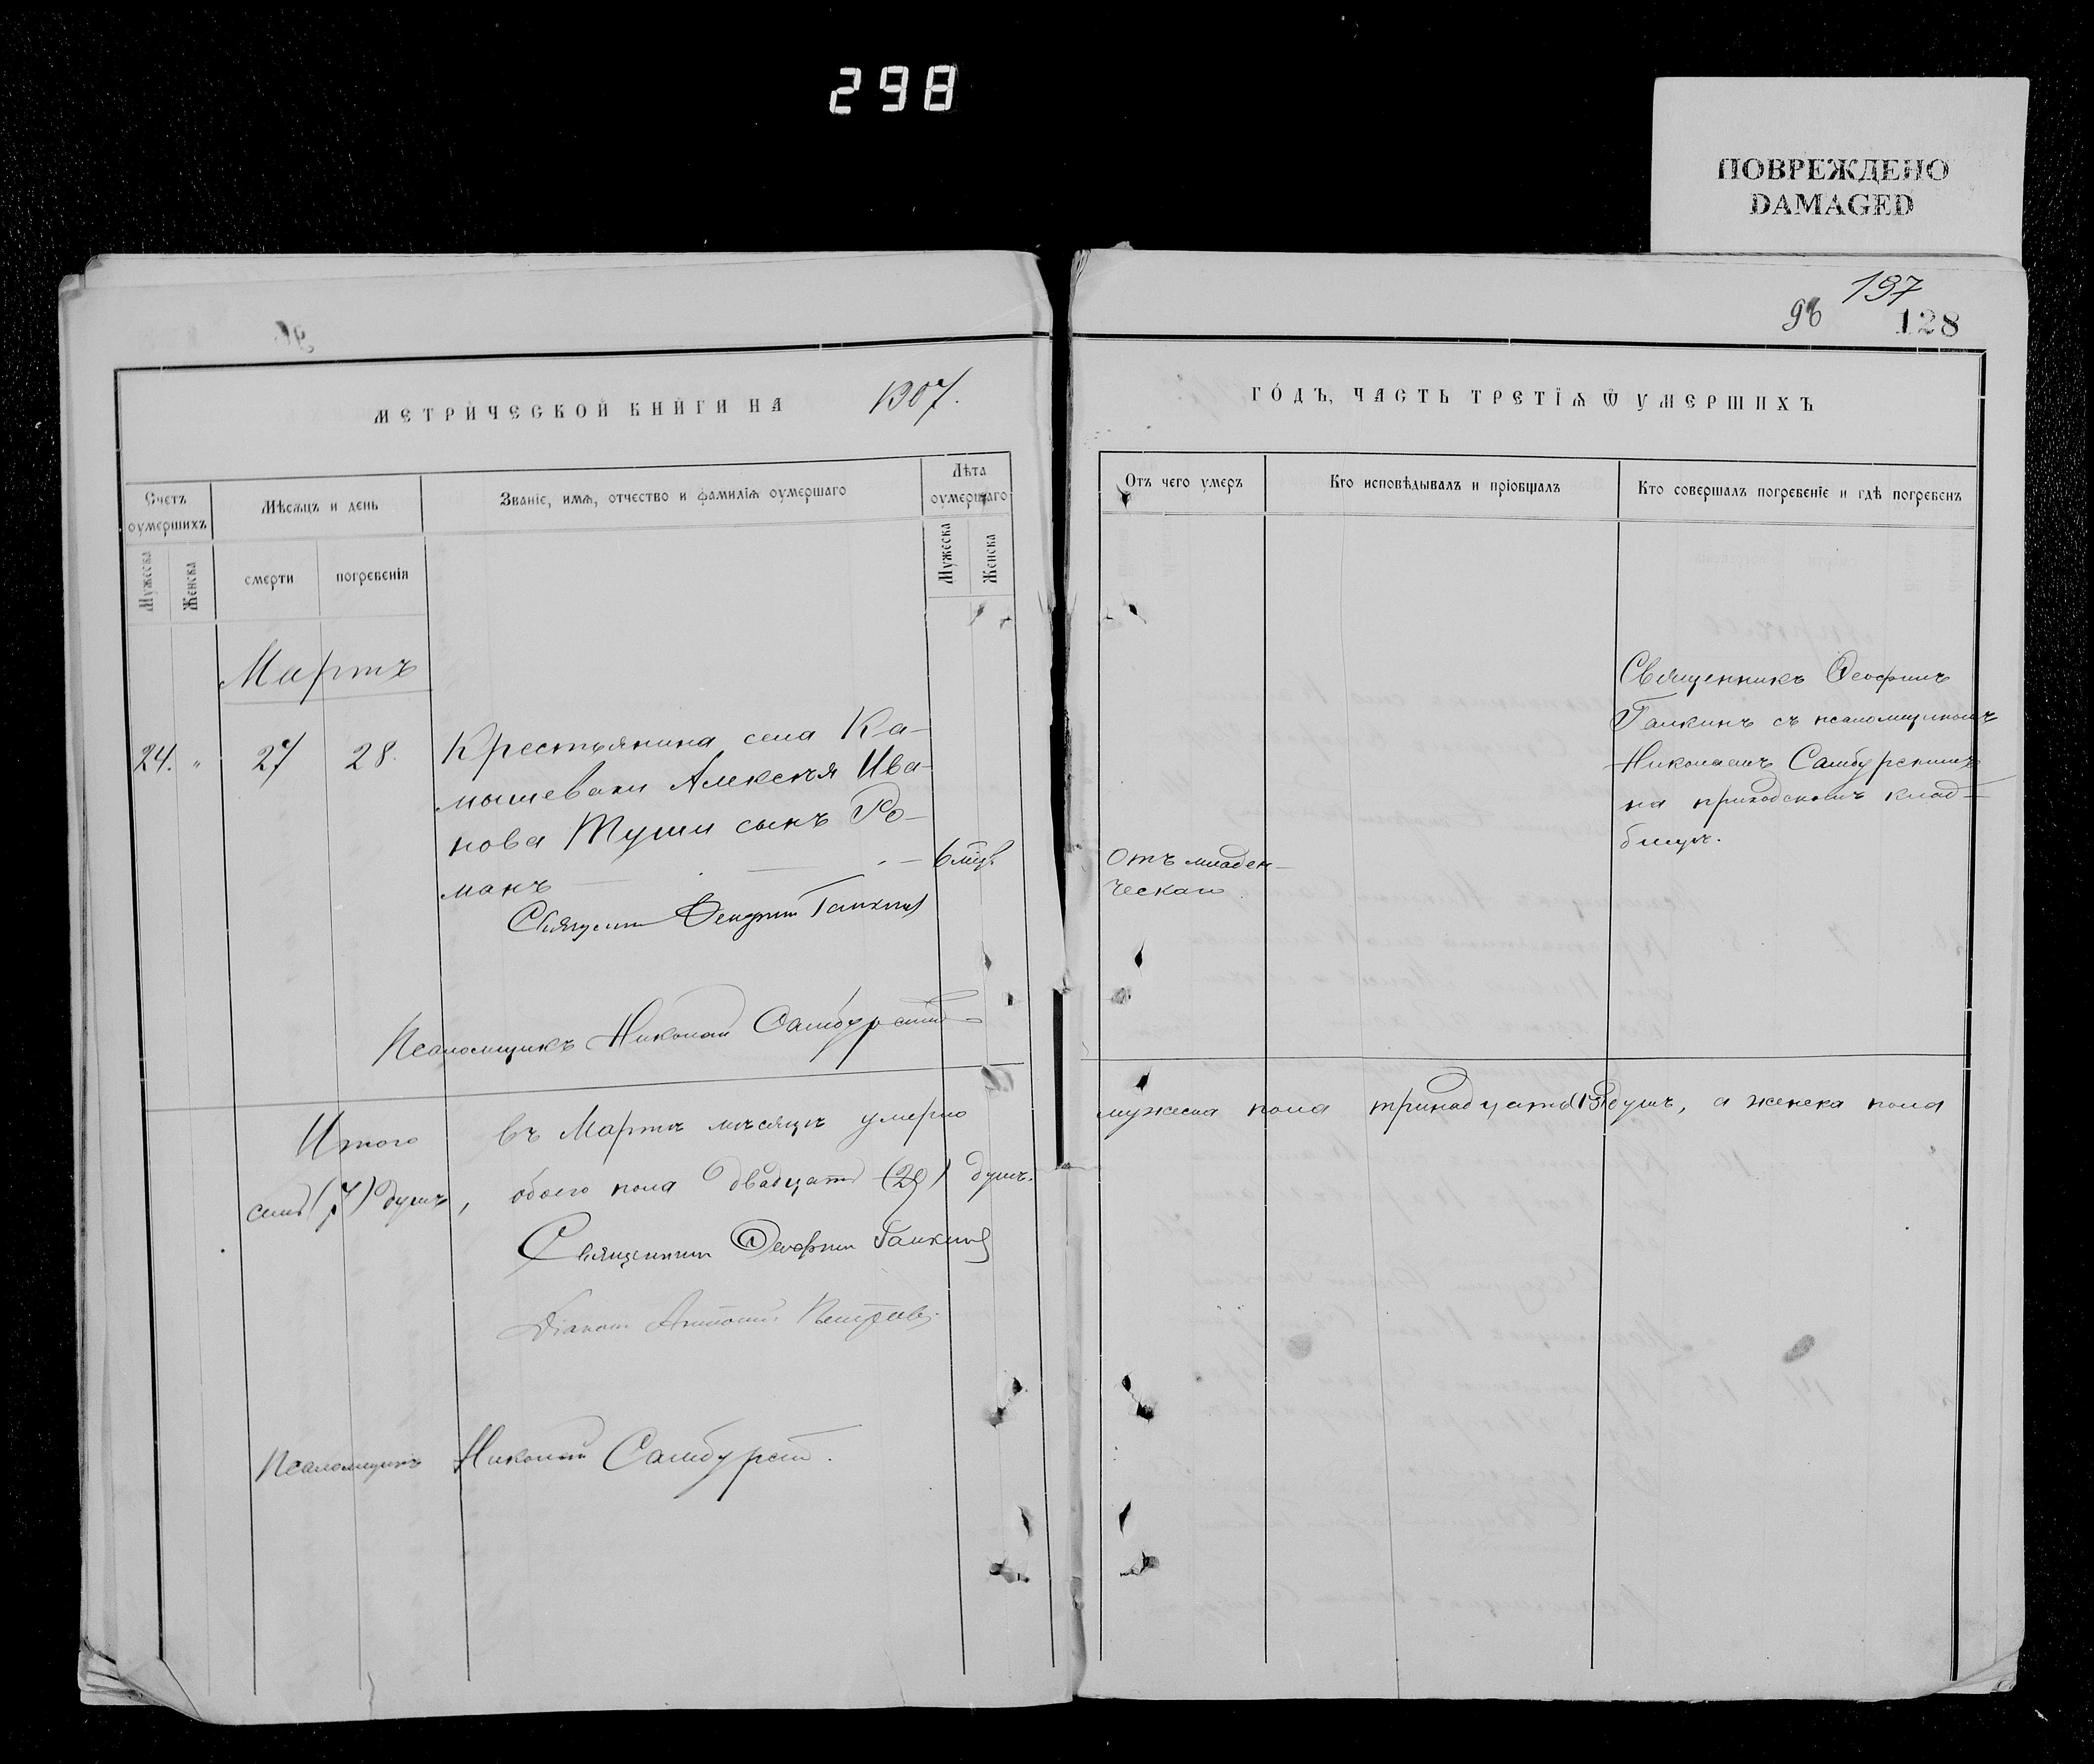 298
ПОВРЕЖДЕНО
DAMAGED
МЕТРИЧЕСКОЙ КНИГИ НА 1907.
Счетъ оумершихъ
Мужеска
Женска
Мѣсяцъ и день
смерти
погребенія
Званіе, имя, отчество и фамилія оумершаго
Лѣта оумершаго
Мужеска
Женска
Мартъ
24. " 27 28.
Крестьянина села Ка-
мышевахи Алексѣя Ива-
нова Туши сынъ Ро-
манъ — — — 6 мцв.
Священникъ Ѳеофилъ Галкинъ
Псаломщикъ Николай Самбурскій
Итого въ Мартѣ мѣсяцѣ умерло
семь (7) душъ, обоего пола двадцать (20) душъ.
Священникъ Ѳеофилъ Галкинъ
Діаконъ Антоній
Псаломщикъ Николай Самбурскій.
197
96
128
ГОДЪ, ЧАСТЬ ТРЕТІЯ Ѿ УМЕРШИХЪ
Отъ чего умеръ
Кто исповѣдывалъ и пріобщалъ
Кто совершалъ погребеніе и гдѣ погребенъ
Отъ младен-
ческаго
Священникъ Ѳеофилъ
Галкинъ съ псаломщикомъ
Николаемъ Самбурскимъ
на приходскомъ клад-
бищѣ.
мужеска пола тринадцать (13) душъ, а женска пола